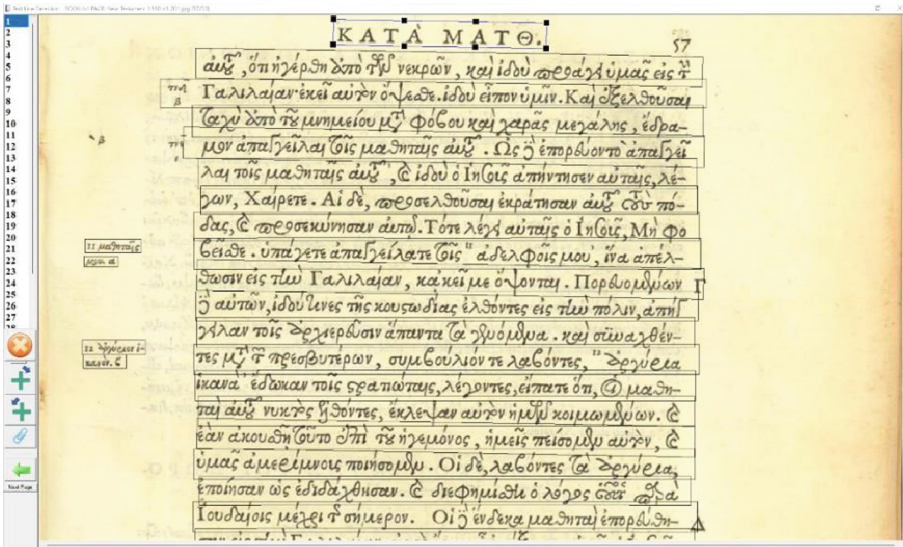 Text Line Selection
ΚΑΤΑ ΜΑΤΘ.
57
αὐτοῦ, ὅτι ἠγέρθη ἀπὸ τῶν νεκρῶν, καὶ ἰδοὺ προάγει ὑμᾶς εἰς τὴν
Γαλιλαίαν· ἐκεῖ αὐτὸν ὄψεσθε. ἰδοὺ εἶπον ὑμῖν. Καὶ ἐξελθοῦσαι
β
ταχὺ ἀπὸ τοῦ μνημείου μετὰ φόβου καὶ χαρᾶς μεγάλης, ἔδρα-
μον ἀπαγγεῖλαι τοῖς μαθηταῖς αὐτοῦ. Ὡς δὲ ἐπορεύοντο ἀπαγγεῖ
λαι τοῖς μαθηταῖς αὐτοῦ, καὶ ἰδοὺ ὁ Ἰησοῦς ἀπήντησεν αὐταῖς, λέ-
γων, Χαίρετε. Αἱ δὲ, προσελθοῦσαι ἐκράτησαν αὐτοῦ τοὺς πό-
δας, καὶ προσεκύνησαν αὐτῷ. Τότε λέγει αὐταῖς ὁ Ἰησοῦς, Μὴ φο
11 μαθηταῖς
μου. α
βεῖσθε. ὑπάγετε ἀπαγγείλατε τοῖς 11 ἀδελφοῖς μου, ἵνα ἀπέλ-
θωσιν εἰς τὴν Γαλιλαίαν, κἀκεῖ με ὄψονται. Πορευομένων Γ
δὲ αὐτῶν, ἰδού τινες τῆς κουστωδίας ἐλθόντες εἰς τὴν πόλιν, ἀπήγ
γειλαν τοῖς ἀρχιερεῦσιν ἅπαντα τὰ γενόμενα. καὶ συναχθέν-
12 ἀργύριον ἱ-
κανόν. ϛ
τες μετὰ τῶν πρεσβυτέρων, συμβούλιόν τε λαβόντες, 12 ἀργύρια
ἱκανὰ ἔδωκαν τοῖς στρατιώταις, λέγοντες, εἴπατε ὅτι, οἱ μαθη-
ταὶ αὐτοῦ νυκτὸς ἐλθόντες, ἔκλεψαν αὐτὸν ἡμῶν κοιμωμένων. καὶ
ἐὰν ἀκουσθῇ τοῦτο ἐπὶ τοῦ ἡγεμόνος, ἡμεῖς πείσομεν αὐτὸν, καὶ
ὑμᾶς ἀμερίμνους ποιήσομεν. Οἱ δὲ, λαβόντες τὰ ἀργύρια,
ἐποίησαν ὡς ἐδιδάχθησαν. καὶ διεφημίσθη ὁ λόγος οὗτος παρὰ
Ἰουδαίοις μέχρι τῆς σήμερον. Οἱ δὲ ἕνδεκα μαθηταὶ ἐπορεύθη-
Δ
1
2
3
4
5
6
7
8
9
10
11
12
13
14
15
16
17
18
19
20
21
22
23
24
25
26
27
28
Next Page